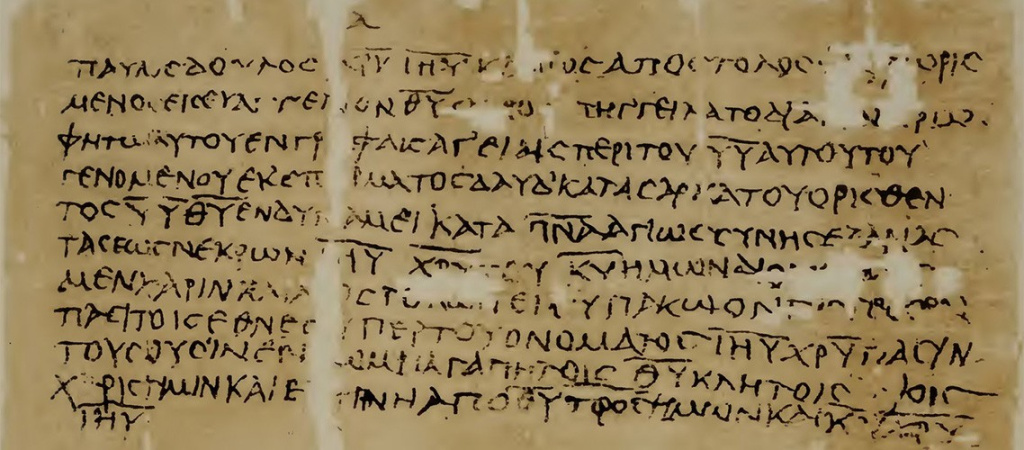 Α
ΠΑΥΛΟϹ ΔΟΥΛΟϹ ΧΡΥ ΙΗΥ ΑΠΟϹΤΟΛΟϹ ΩΡΙϹ
ΜΕΝΟϹ ΕΙϹ ΕΥΑΓΓΕΛΙΟΝ ΘΥ ΔΙΑ
ΦΗΤΩΝ ΑΥΤΟΥ ΕΝ ΓΡΑΦΑΙϹ ΑΓΕΙΑΙϹ ΠΕΡΙ ΤΟΥ ΥΥ ΑΥΤΟΥ ΤΟΥ
ΓΕΝΟΜΕΝΟΥ ΕΚ ϹΠΡΜΑΤΟϹ ΔΑΥΔ ΚΑΤΑ ϹΑΡΚΑ ΤΟΥ ΟΡΙϹΘΕΝ
ΤΟϹ ΥΥ ΘΥ ΕΝ ΔΥΝΑΜΕΙ ΚΑΤΑ ΠΝΑ ΑΓΙΩϹϹΥΝΗϹ ΕΞ ΑΝΑϹ
ΤΑϹΕΩϹ ΝΕΚΡΩΝ ΙΗΥ ΧΡΥ ΤΟΥ ΚΥ ΗΜΩΝ
ΜΕΝ ΧΑΡΙΝ ΚΑΙ ΥΠΑΚΩΟΝ
ΠΑϹΙ ΤΟΙϹ ΕΘΝΕϹΙ ΥΠΕΡ ΤΟΥ ΟΝΟΜΑΤΟϹ ΙΗΥ ΧΡΥ
ΤΟΥϹ ΟΥϹΙΝ ΕΝ ΑΓΑΠΗΤΟΙϹ ΘΥ ΚΛΗΤΟΙϹ
ΧΑΡΙϹ ΗΜΙΝ ΚΑΙ ΕΙΡΗΝΗ ΑΠΟ ΘΥ ΠΡΟϹ ΗΜΩΝ ΚΑΙ ΚΥ ΧΡΥ
ΙΗΥ